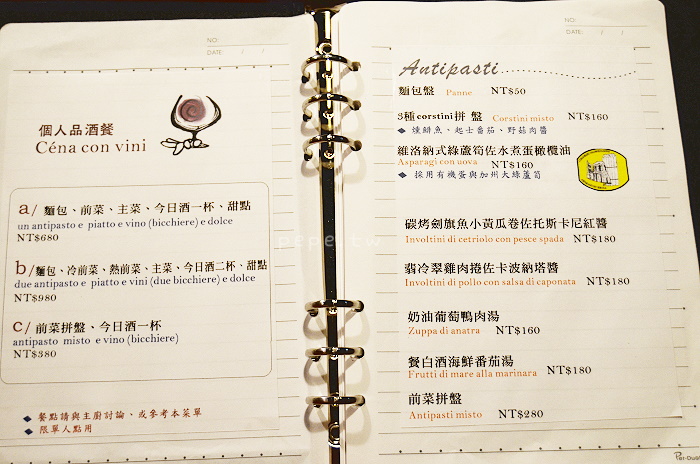 NO:
DATE: / /
個人品酒餐
Céna con vini
a/ 麵包、前菜、主菜、今日酒一杯、甜點
un antipasto e piatto e vino (bicchiere) e dolce
NT$680
b/ 麵包、冷前菜、熱前菜、主菜、今日酒二杯、甜點
due antipasto e piatto e vini (due bicchiere) e dolce
NT$980
c/ 前菜拼盤、今日酒一杯
antipasto misto e vino (bicchiere)
NT$380
◆ 餐點請與主廚討論、或參考本菜單
◆ 限單人點用
pepe.tw
NO:
DATE: / /
Antipasti
麵包盤 Panne NT$50
3種corstini拼 盤 Corstini misto NT$160
◆ 燻鯡魚、起士番茄、野菇肉醬
維洛納式綠蘆筍佐水煮蛋橄欖油
Asparagi con uova NT$160
◆ 採用有機蛋與加州大綠蘆筍
碳烤劍旗魚小黃瓜卷佐托斯卡尼紅醬
Involtini di cetriolo con pesce spada NT$180
翡冷翠雞肉捲佐卡波納塔醬
Involtini di pollo con salsa di caponata NT$180
奶油葡萄鴨肉湯
Zuppa di anatra NT$160
餐白酒海鮮番茄湯
Frutti di mare alla marinara NT$180
前菜拼盤
Antipasti misto NT$280